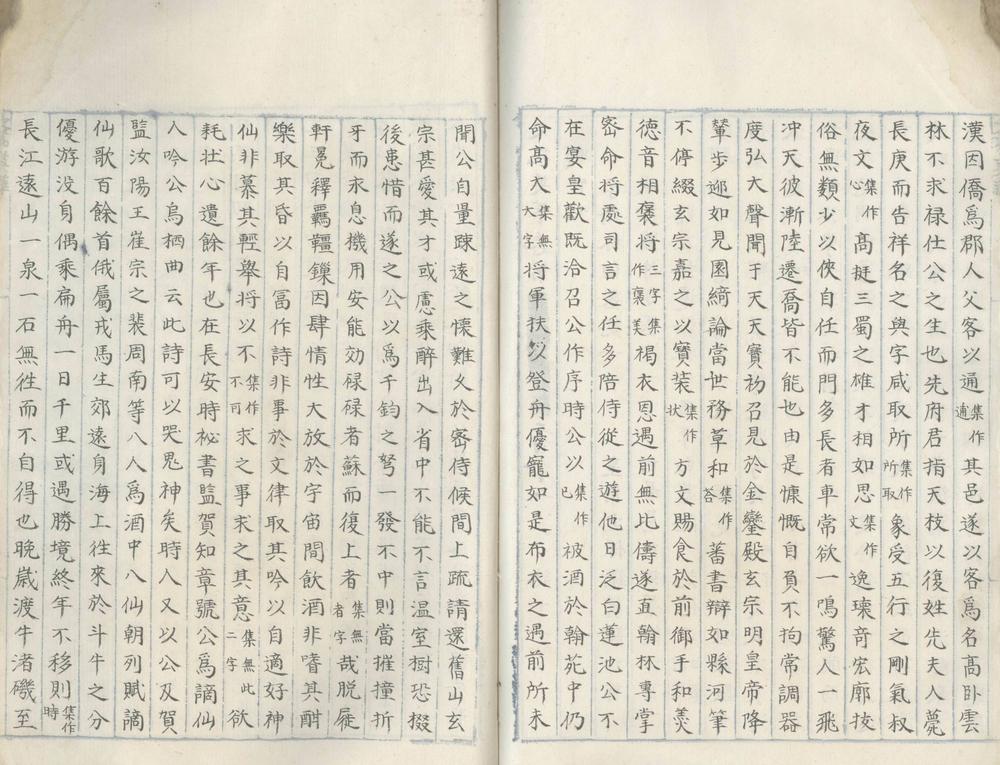 漢因僑爲郡人父客以通集作逋其邑遂以客爲名高卧雲
林不求禄仕公之生也先府君指天枝以復姓先夫人夢
長庚而告祥名之與字咸取所集作所取象受五行之剛氣叔
夜文集作心髙挺三蜀之雄才相如思集作文逸瓌竒宏廓拔
俗無類少以俠自任而門多長者車常欲一鳴驚人一飛
冲天彼漸陸遷喬皆不能也由是慷慨自負不拘常調器
度弘大聲聞于天天寶初召見於金鑾殿玄宗明皇帝降
輦步迎如見園綺論當世務草和集作荅蕃書辯如縣河筆
不停綴玄宗嘉之以寶装集作牀方丈賜食於前御手和羹
德音相褒將三字集作褒美褐衣恩遇前無比儔遂直翰林專掌
宻命将處司言之任多陪侍從之遊他日泛白蓮池公不
在宴皇歡既洽召公作序時公以集作已被酒於翰苑中仍
命髙大集無大字将軍扶以登舟優寵如是布衣之遇前所未
聞公自量踈遠之懷難久於宻侍候間上疏請還舊山玄
宗甚愛其才或慮乘醉出入省中不能不言温室樹恐掇
後患惜而遂之公以爲千鈞之弩一發不中則當摧撞折
牙而永息機用安能効碌碌者蘇而復上者集無者字哉脱屣
軒冕釋羈韁鏁因肆情性大放於宇宙間飲酒非嗜其酣
樂取其昏以自冨作詩非事於文律取其吟以自適好神
仙非慕其輕舉将以不集作不可求之事求之其意集無此二字欲
耗壮心遺餘年也在長安時秘書監賀知章號公爲謫仙
人吟公烏栖曲云此詩可以哭鬼神矣時人又以公及賀
監汝陽王崔宗之裴周南等八人爲酒中八仙朝列賦謫
仙歌百餘首俄屬戎馬生郊遠身海上徃來於斗牛之分
優游没身偶乘扁舟一日千里或遇勝境終年不移則集作時
長江遠山一泉一石無徃而不自得也晚歲渡牛渚磯至